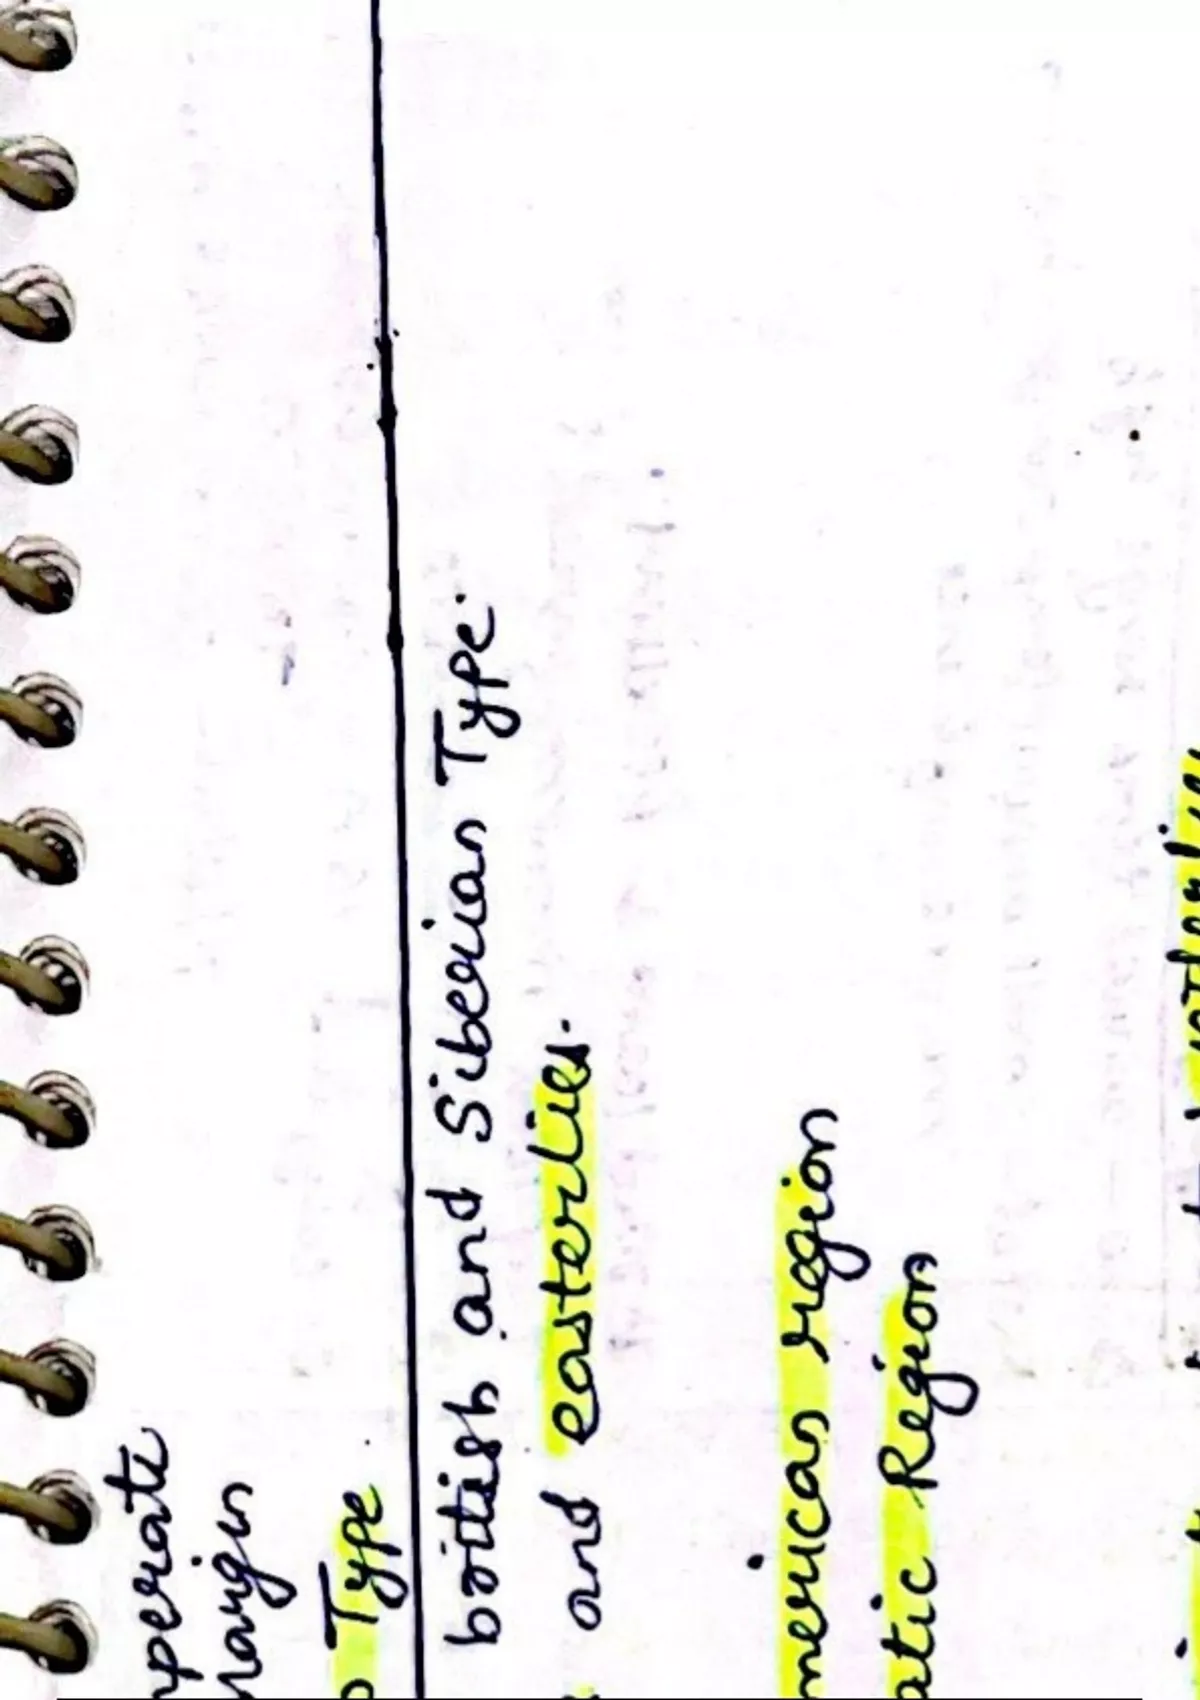 nperate
Margin
Type
british and Siberian Type.
and easterlies.
merican region
atic Region